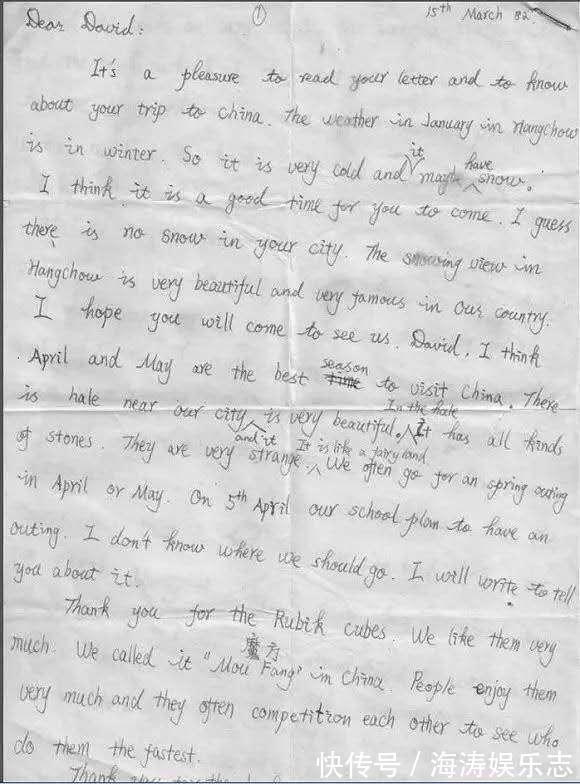 ①
15th March 82
Dear David:
It's a pleasure to read your letter and to know
about your trip to China. The weather in January in Hangchow
is in winter. So it is very cold and it maybe have snow.
I think it is a good time for you to come. I guess
there is no snow in your city. The snowing view in
Hangchow is very beautiful and very famous in our country.
I hope you will come to see us. David, I think
April and May are the best season to visit China. There
is hale near our city and it is very beautiful. In the hale it has all kinds
of stones. They are very strange. It is like a fairyland. We often go for an spring outing
in April or May. On 5th April our school plan to have an
outing. I don't know where we should go. I will write to tell
you about it.
Thank you for the Rubik cubes. We like them very
much. We called it "Mou Fang" 魔方 in China. People enjoy them
very much and they often competition each other to see who
do them the fastest.
Thank you for the
快传号 / 海涛娱乐志